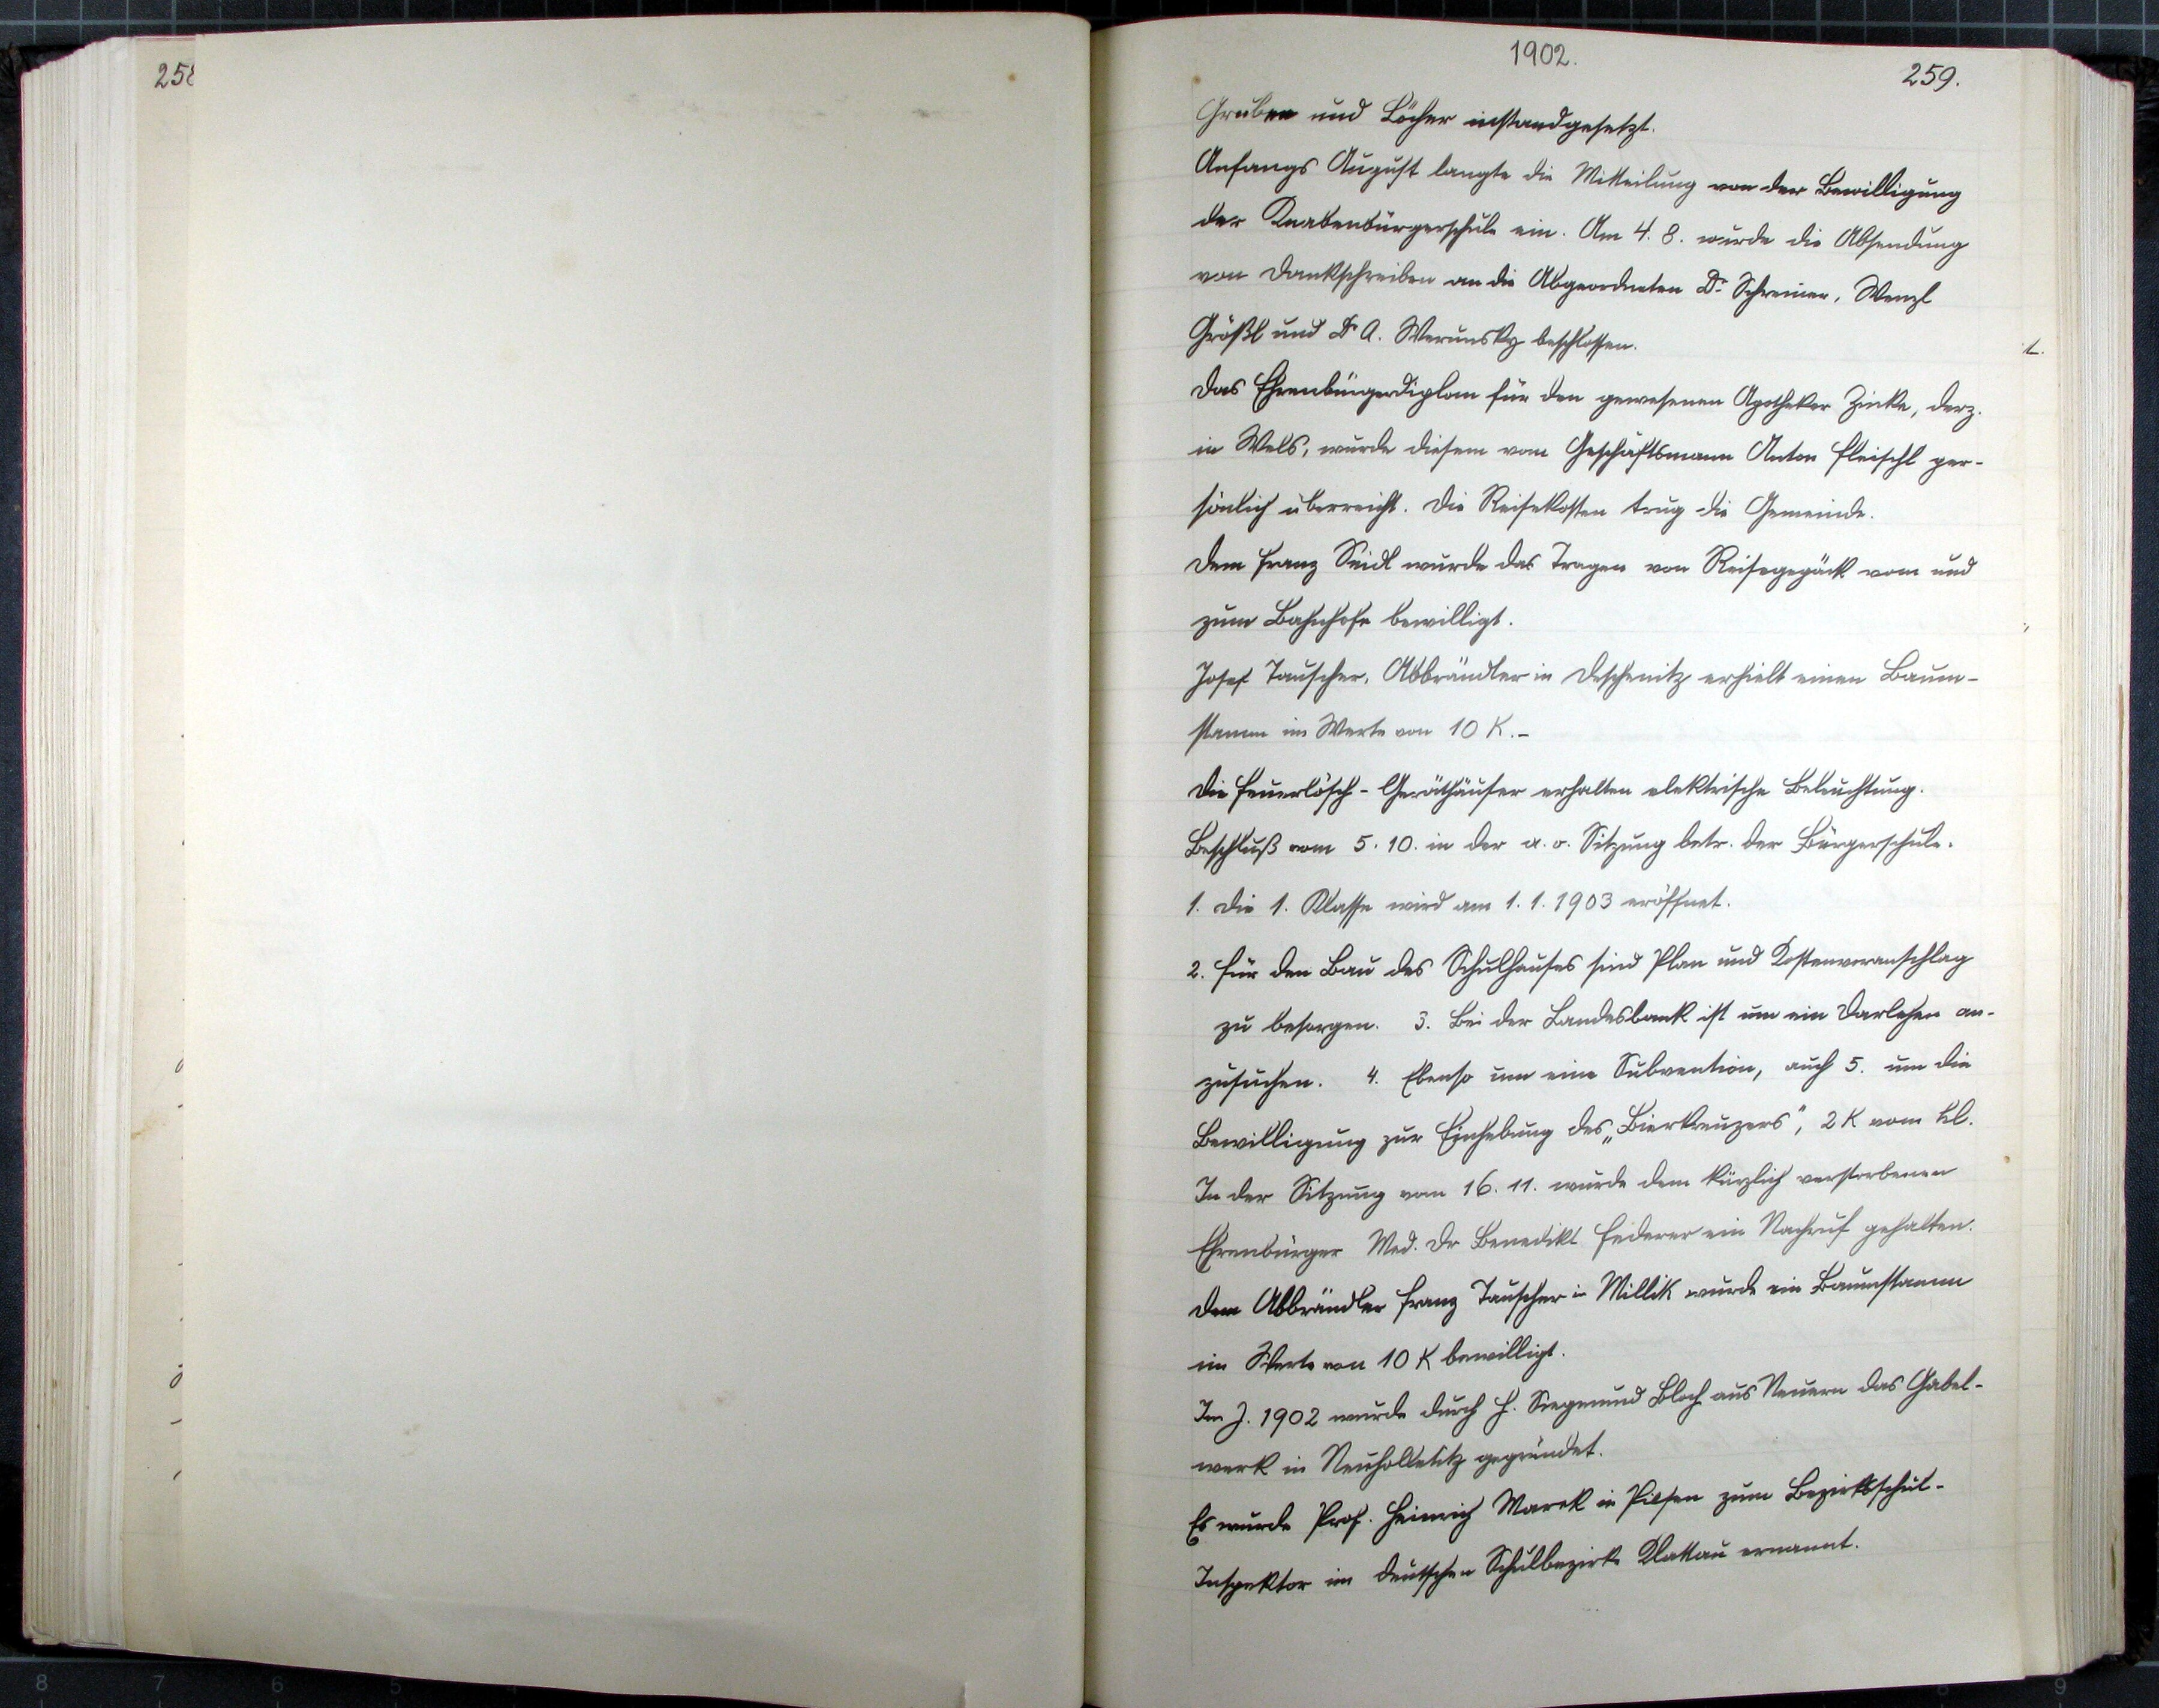 258
1902.
259.
Gruben und Löcher instandgesetzt.
Anfangs August langte die Mitteilung von der Bewilligung
der Knabenbürgerschule ein. Am 4. 8. wurde die Absendung
von Dankschreiben an die Abgeordneten Dr. Schreiner, Wenzl
Größl und Dr A. Werunsky beschlossen.
Das Ehrenbürgerdiplom für den gewesenen Apotheker Zinke, derz.
in Wels, wurde diesem vom Geschäftsmann Anton Fleischl per-
sönlich überreicht. Die Reisekosten trug die Gemeinde.
Dem Franz Seidl wurde das Tragen von Reisegepäck vom und
zum Bahnhofe bewilligt.
Josef Tauscher, Abbrändler in Deschenitz erhielt einen Baum-
stamm im Werte von 10 K.-
Die Feuerlösch-Geräthäuser erhalten elektrische Beleuchtung.
Beschluß vom 5. 10. in der a. o. Sitzung betr. der Bürgerschule.
1. Die 1. Klasse wird am 1. 1. 1903 eröffnet.
2. Für den Bau des Schulhauses sind Plan und Kostenvoranschlag
zu besorgen. 3. Bei der Landesbank ist um ein Darlehen an-
zusuchen. 4. Ebenso um eine Subvention, auch 5. um die
Bewilligung zur Einhebung des „Bierkreuzers", 2 K vom hl.
In der Sitzung vom 16. 11. wurde dem kürzlich verstorbenen
Ehrenbürger Med. Dr Benedikt Federer ein Nachruf gehalten.
Dem Abbrändler Franz Tauscher in Millik wurde ein Baumstamm
im Werte von 10 K bewilligt.
Im J. 1902 wurde durch H. Siegmund Bloch aus Neuern das Gabel-
werk in Neuholletitz gegründet.
Es wurde Prof. Heinrich Marek in Pilsen zum Bezirksschul-
Inspektor im deutschen Schulbezirke Klattau ernannt.